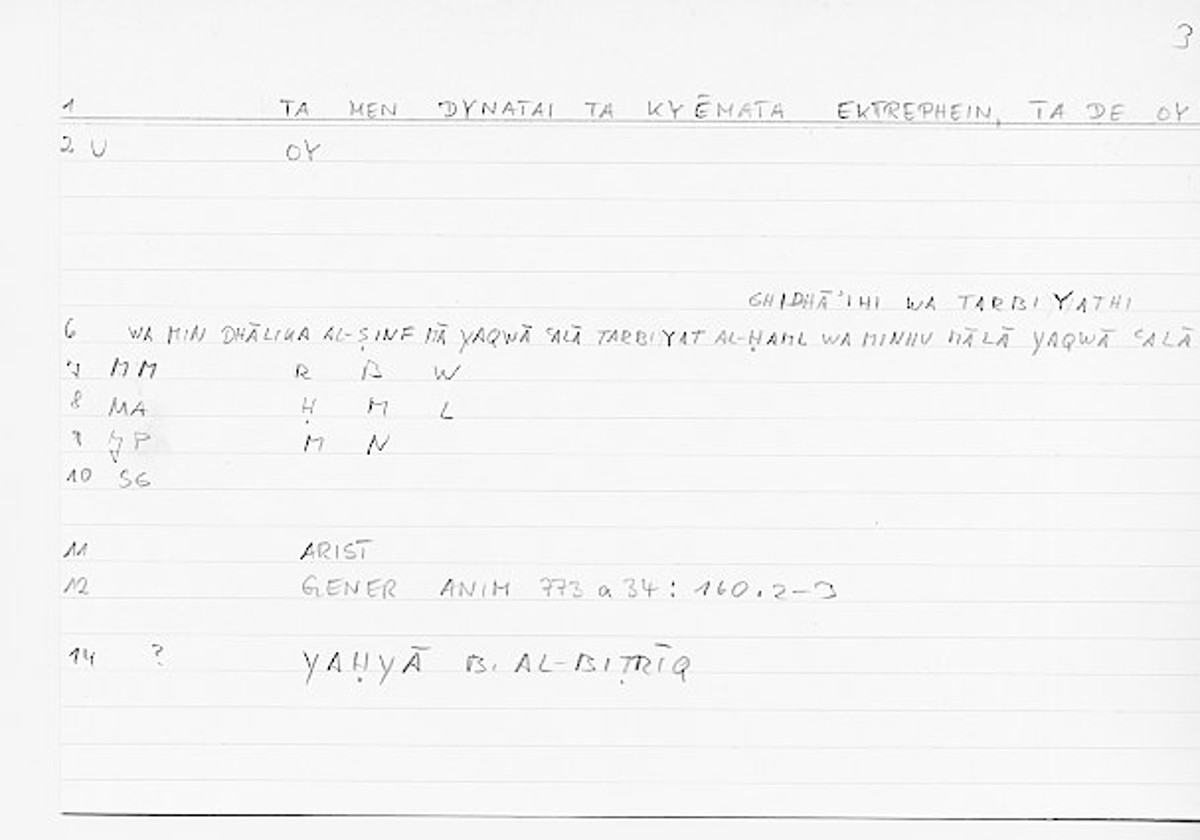 3
1 TA MEN DYNATAI TA KYĒMATA EKTREPHEIN, TA DE OY
2 U OY
GHIDHĀʾIHI WA TARBIYATHI
6 WA MIN DHĀLIKA AL-ṢINF MĀ YAQWĀ ʿALĀ TARBIYAT AL-ḤAML WA MINHU MĀ LĀ YAQWĀ ʿALĀ
7 MM R B W
8 MA Ḥ M L
9 P M N
10 SG
11 ARIST
12 GENER ANIM 773 a 34: 160.2-3
14 ? YAḤYĀ B. AL-BIṬRĪQ